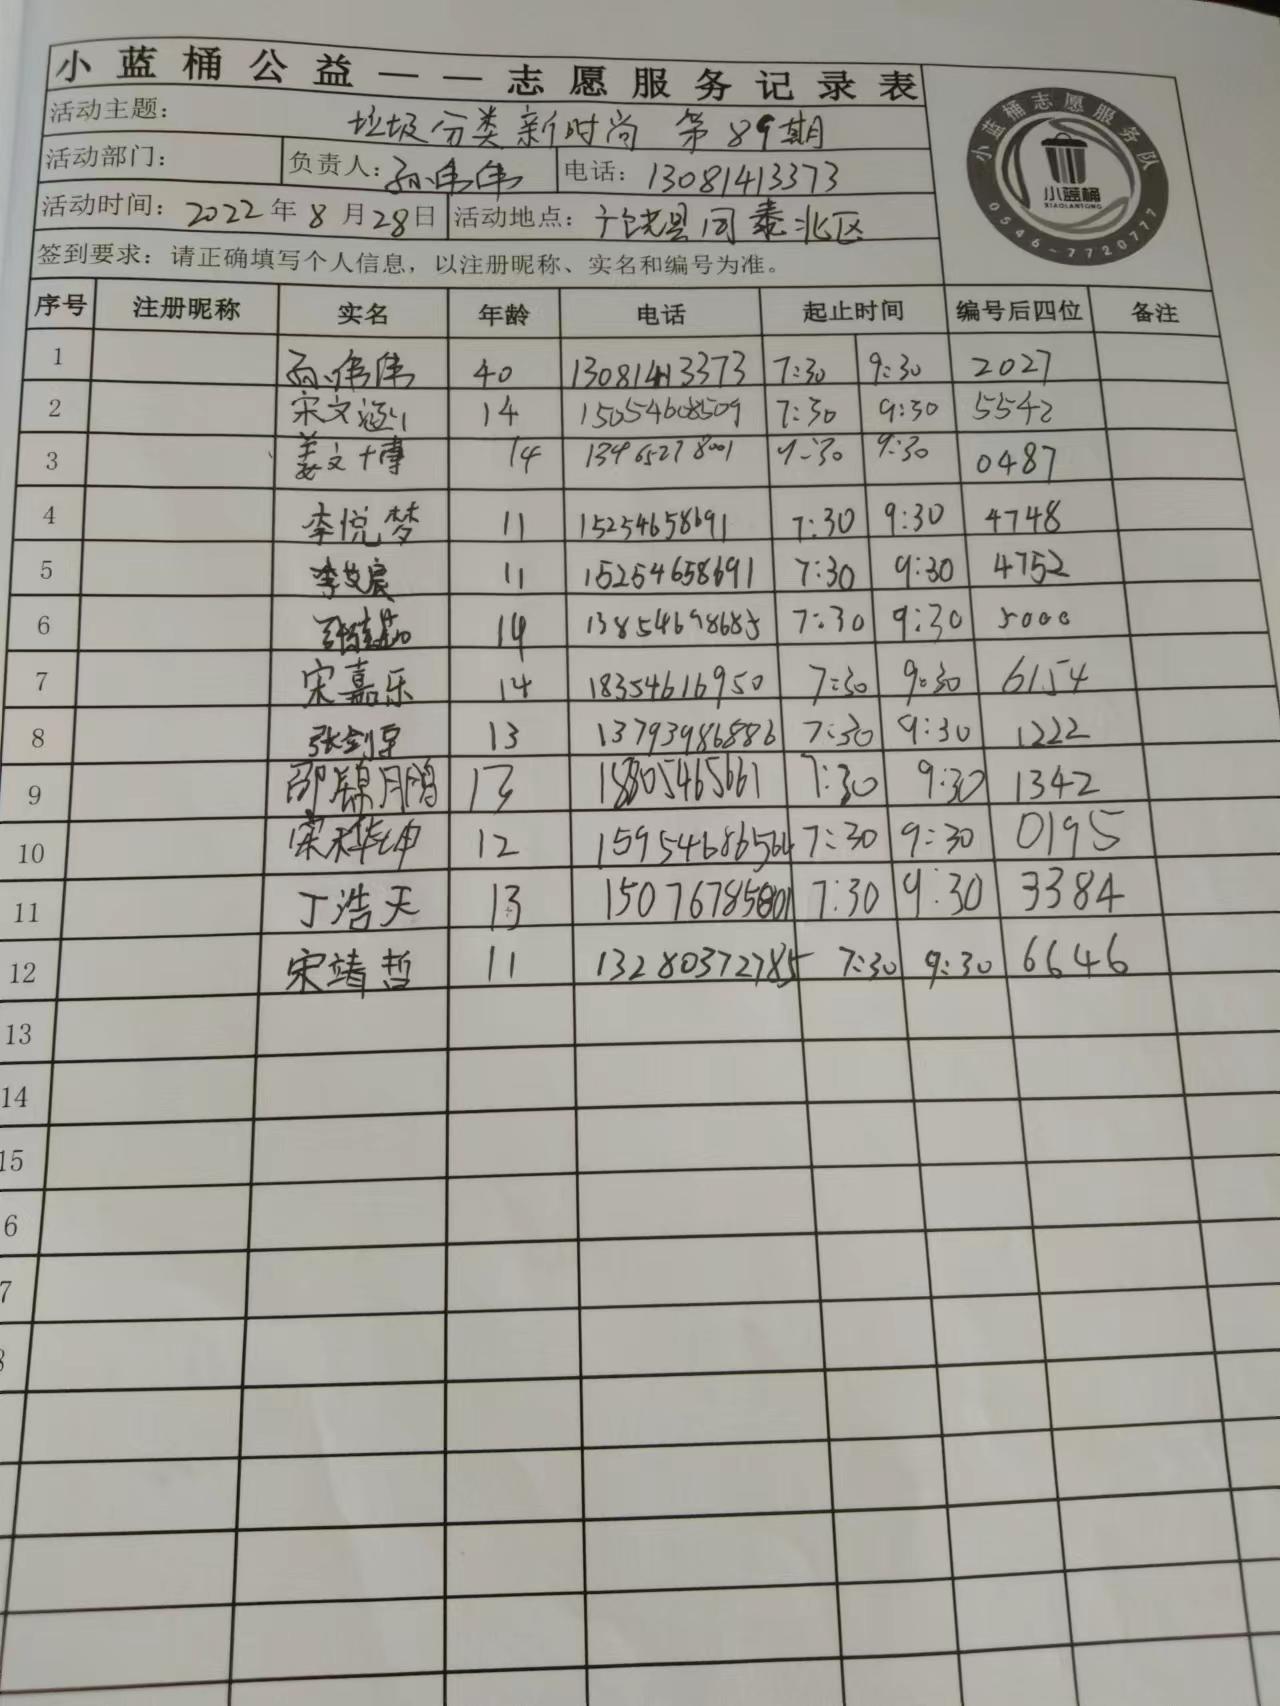 小蓝桶公益——志愿服务记录表
活动主题： 垃圾分类新时尚 第89期
活动部门： 负责人：孙伟伟 电话：13081413373
活动时间：2022年8月28日 活动地点：广饶县同泰北区
签到要求：请正确填写个人信息，以注册昵称、实名和编号为准。
小蓝桶志愿服务队
小蓝桶
XIAOLANTONG
0546-7720777
序号 注册昵称 实名 年龄 电话 起止时间 编号后四位 备注
1 孙伟伟 40 13081413373 7:30 9:30 2027
2 宋文涵 14 15054608509 7:30 9:30 5542
3 姜文博 14 13465278001 7:30 9:30 0487
4 李悦梦 11 15254658691 7:30 9:30 4748
5 李艾宸 11 15254658691 7:30 9:30 4752
6 14 13854698685 7:30 9:30 5000
7 宋嘉乐 14 18354616950 7:30 9:30 6154
8 张剑宇 13 13793986886 7:30 9:30 1222
9 邵锦鹏 13 15805465661 7:30 9:30 1342
10 宋华坤 12 15954686564 7:30 9:30 0195
11 丁浩天 13 15076785801 7:30 9:30 3384
12 宋靖哲 11 13280372785 7:30 9:30 6646
13
14
15
6
7
8